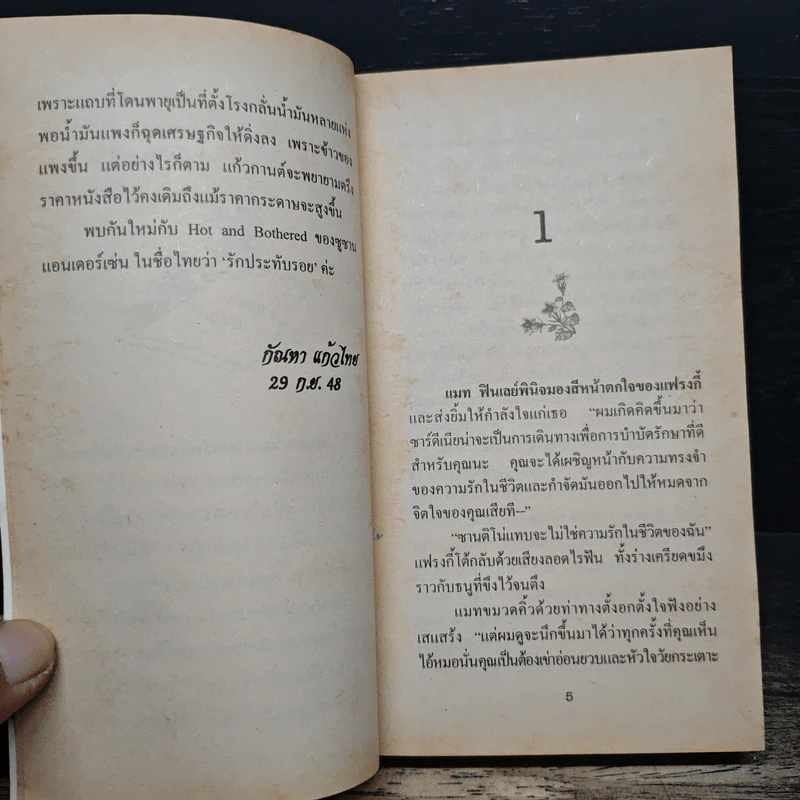 เพราะแถบที่โดนพายุเป็นที่ตั้งโรงกลั่นน้ำมันหลายแห่ง
พอน้ำมันแพงก็ฉุดเศรษฐกิจให้ดิ่งลง เพราะข้าวของ
แพงขึ้น แต่อย่างไรก็ตาม แก้วกานต์จะพยายามตรึง
ราคาหนังสือไว้คงเดิมถึงแม้ราคากระดาษจะสูงขึ้น
พบกันใหม่กับ Hot and Bothered ของซูซาน
แอนเดอร์เซ่น ในชื่อไทยว่า ‘รักประทับรอย’ ค่ะ
กัณหา แก้วไทย
29 ก.ย. 48
1
แมท ฟินเลย์พินิจมองสีหน้าตกใจของแฟรงกี้
และส่งยิ้มให้กำลังใจแก่เธอ “ผมเกิดคิดขึ้นมาว่า
ซาร์ดีเนียน่าจะเป็นการเดินทางเพื่อการบำบัดรักษาที่ดี
สำหรับคุณนะ คุณจะได้เผชิญหน้ากับความทรงจำ
ของความรักในชีวิตและกำจัดมันออกไปให้หมดจาก
จิตใจของคุณเสียที--”
“ซานติโน่แทบจะไม่ใช่ความรักในชีวิตของฉัน”
แฟรงกี้โต้กลับด้วยเสียงลอดไรฟัน ทั้งร่างเครียดขมึง
ราวกับธนูที่ขึงไว้จนตึง
แมทขมวดคิ้วด้วยท่าทางตั้งอกตั้งใจฟังอย่าง
เสแสร้ง “แต่ผมดูจะนึกขึ้นมาได้ว่าทุกครั้งที่คุณเห็น
ไอ้หมอนั่นคุณเป็นต้องเข่าอ่อนยวบและหัวใจวัยกระเตาะ
5